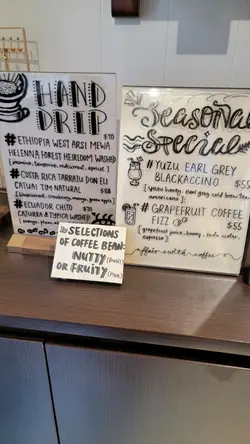 HAND
DRIP
#ETHIOPIA WEST ARSI MEWA $70
HELENNA FOREST HEIRLOOM WASHED
[jasmine, tangerine, redcurrant, apricot]
#COSTA RICA TARRAZU DON ELI
CATUAI TIM NATURAL $88
cranberry, mango, green apple]
#ECUADOR CHITO $70
CATURRA & TYPICA WASHED
Seasonal
Special
#YUZU EARL GREY
BLACKACCINO $55
[yuzu honey, earl grey cold brew tea,
americano]
#GRAPEFRUIT COFFEE
FIZZ $55
[grapefruit juice, honey, soda water
espresso]
affair with coffee
SELECTIONS
OF COFFEE BEAN:
NUTTY
OR FRUITY